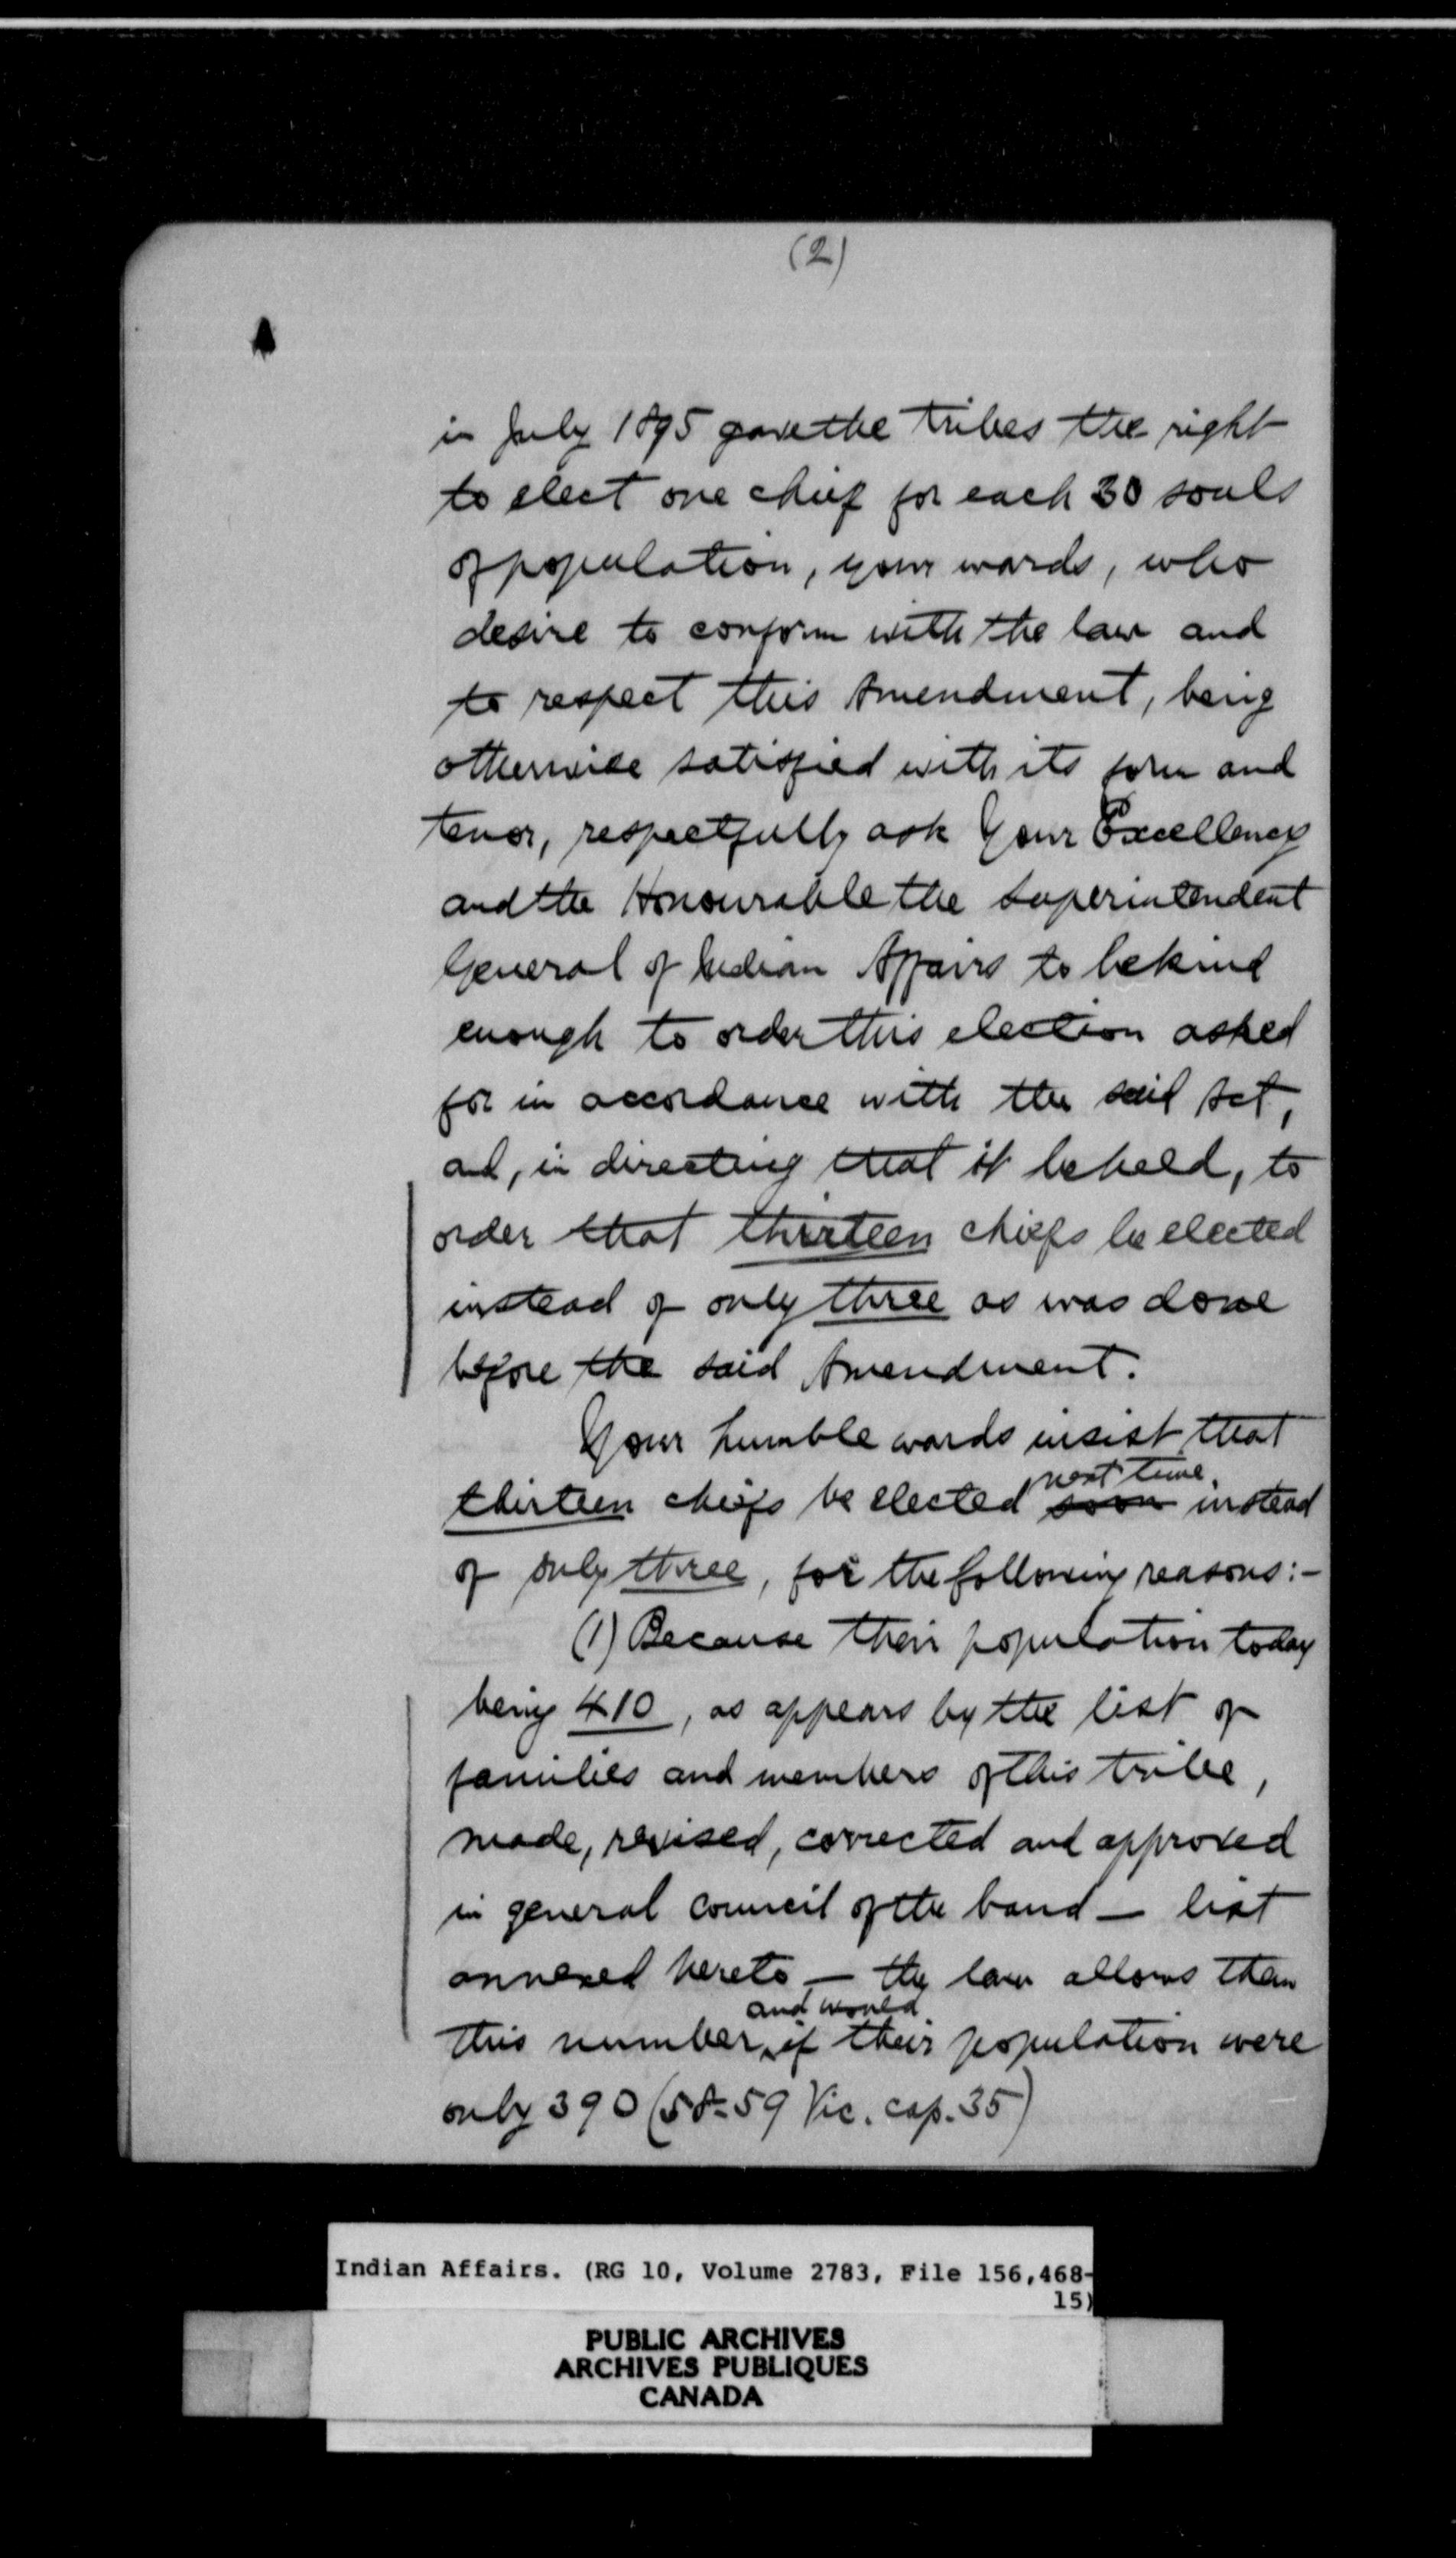 (2)
in July 1895 gave the tribes the right
to elect one chief for each 30 souls
of population, your wards, who
desire to conform with the law and
to respect this Amendment, being
otherwise satisfied with its form and
tenor, respectfully ask Your Excellency
and the Honourable the Superintendent
General of Indian Affairs to be kind
enough to order this election asked
for in accordance with the said Act,
and, in directing that it be held, to
order that thirteen chiefs be elected
instead of only three as was done
before the said Amendment.
Your humble wards insist that
thirteen chiefs be elected soon next time, instead
of only three, for the following reasons:-
(1) Because their population today
being 410, as appears by the list of
families and members of this tribe,
made, revised, corrected and approved
in general council of the band — list
annexed hereto — the law allows them
this number, and would if their population were
only 390 (58-59 Vic. cap. 35)
Indian Affairs. (RG 10, Volume 2783, File 156,468-
15)
PUBLIC ARCHIVES
ARCHIVES PUBLIQUES
CANADA